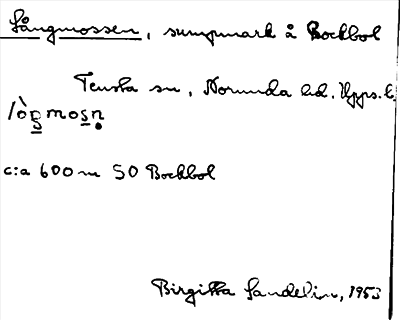 Långmossen, sumpmark å Bockbol
Tensta sn, Norunda hd. Upps. l.
c:a 600 m SO Bockbol
Birgitta Sandelin, 1953